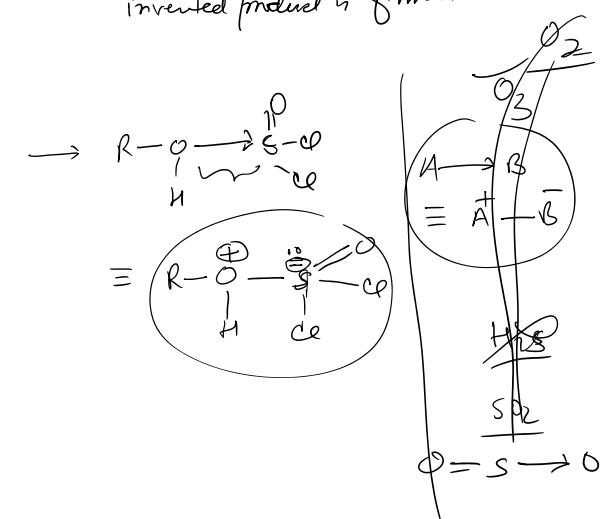 invented product is
O
O2
O3
→ R—O→S—Cl
H
Cl
A→B
≡ A⁺—B⁻
≡ R—O—S=O
⊕
⊖
—Cl
H
Cl
H2S
SO2
O=S→O